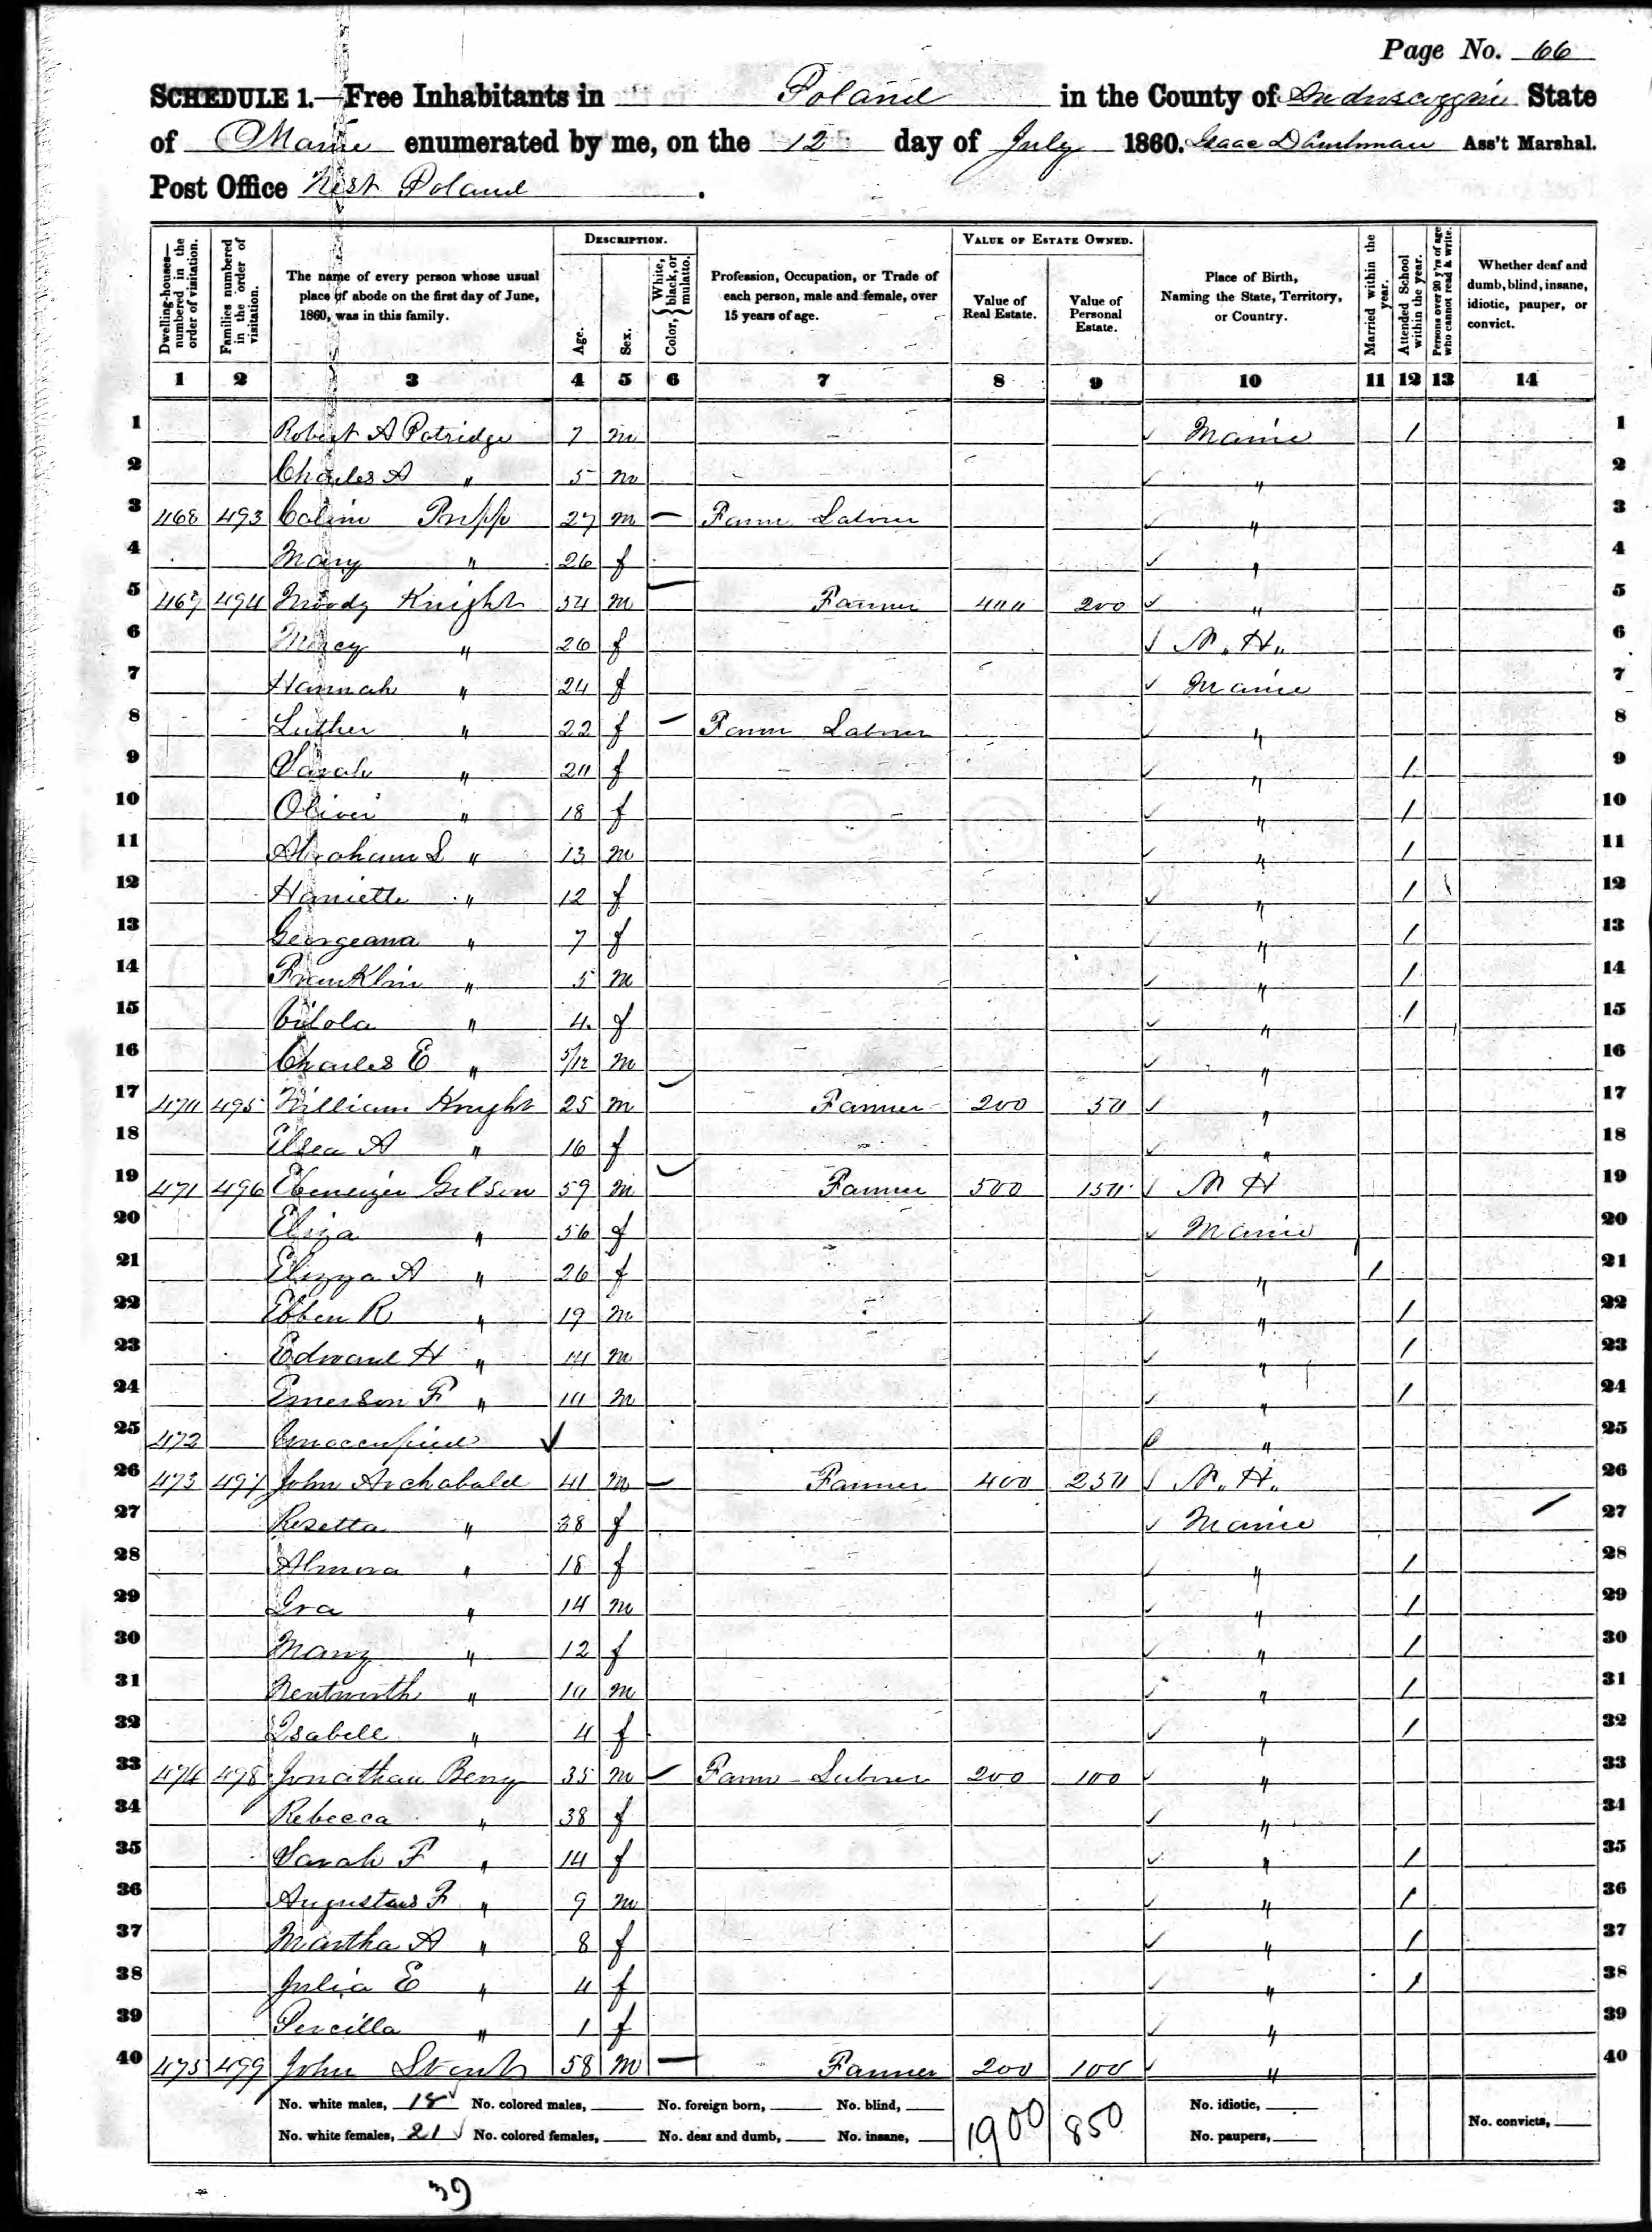 Page No. 66
SCHEDULE 1.—Free Inhabitants in Poland in the County of Androscoggin State
of Maine enumerated by me, on the 12 day of July 1860. Isaac Ass't Marshal.
Post Office West Poland.
Dwelling-houses—numbered in the order of visitation.
Families numbered in the order of visitation.
The name of every person whose usual place of abode on the first day of June, 1860, was in this family.
DESCRIPTION.
Age.
Sex.
Color, { White, black, or mulatto.
Profession, Occupation, or Trade of each person, male and female, over 15 years of age.
VALUE OF ESTATE OWNED.
Value of Real Estate.
Value of Personal Estate.
Place of Birth, Naming the State, Territory, or Country.
Married within the year.
Attended School within the year.
Persons over 20 y'rs of age who cannot read & write.
Whether deaf and dumb, blind, insane, idiotic, pauper, or convict.
1 2 3 4 5 6 7 8 9 10 11 12 13 14
1 Robert A Patridge 7 m Maine / 1
2 Charles A " 5 m " 2
3 468 493 27 m Farm Laborer " 3
4 Mary " 26 f " 4
5 469 494 Moody Knight 54 m Farmer 400 200 " 5
6 " 26 f N. H. 6
7 Hannah " 24 f Maine 7
8 Luther " 22 f Farm Laborer " 8
9 Sarah " 20 f " / 9
10 Oliver " 18 f " / 10
11 Abraham L " 13 m " / 11
12 Harriette " 12 f " / 12
13 Georgeana " 7 f " / 13
14 Franklin " 5 m " / 14
15 " 4 f " / 15
16 Charles E " 5/12 m " 16
17 470 495 William Knight 25 m Farmer 200 50 " 17
18 Elsea A " 16 f " 18
19 471 496 Ebenezer Gilson 59 m Farmer 500 150 N H 19
20 Eliza " 56 f Maine 20
21 Elizza A " 26 f " / 21
22 Ebben R " 19 m " / 22
23 Edward H " 14 m " / 23
24 Emerson F " 10 m " / 24
25 472 Unoccupied " 25
26 473 497 John Archabald 41 m Farmer 400 250 N. H. 26
27 Rosetta " 38 f Maine / 27
28 Almera " 18 f " / 28
29 Ira " 14 m " / 29
30 Mary " 12 f " / 30
31 Wentworth " 10 m " / 31
32 Isabell " 4 f " / 32
33 474 498 Jonathan Berry 35 m Farm Laborer 200 100 " 33
34 Rebecca " 38 f " 34
35 Sarah F " 14 f " / 35
36 Augustus F " 9 m " / 36
37 Martha A " 8 f " / 37
38 Julia E " 4 f " / 38
39 Percilla " 1 f " 39
40 475 499 John Strout 58 m Farmer 200 100 " 40
No. white males, 18 No. colored males, No. foreign born, No. blind, 1900 850 No. idiotic,
No. white females, 21 No. colored females, No. deaf and dumb, No. insane, No. paupers, No. convicts,
39